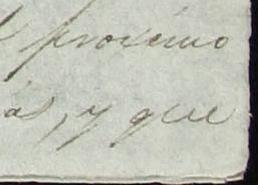 proximo
as, y que